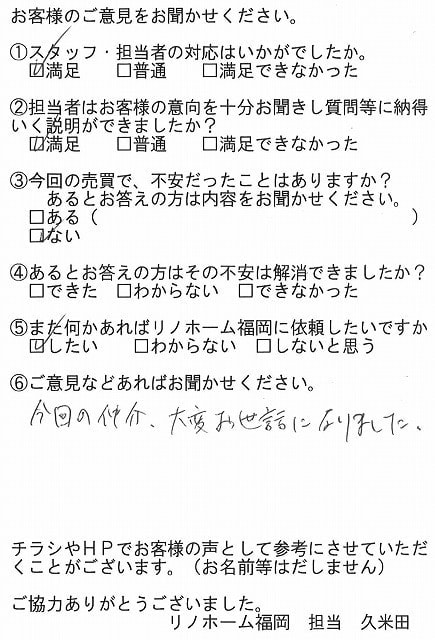 お客様のご意見をお聞かせください。
①スタッフ・担当者の対応はいかがでしたか。
☑満足 □普通 □満足できなかった
②担当者はお客様の意向を十分お聞きし質問等に納得
いく説明ができましたか?
☑満足 □普通 □満足できなかった
③今回の売買で、不安だったことはありますか?
あるとお答えの方は内容をお聞かせください。
□ある( )
☑ない
④あるとお答えの方はその不安は解消できましたか?
□できた □わからない □できなかった
⑤また何かあればリノホーム福岡に依頼したいですか
☑したい □わからない □しないと思う
⑥ご意見などあればお聞かせください。
今回の仲介、大変お世話になりました。
チラシやHPでお客様の声として参考にさせていただ
くことがございます。(お名前等はだしません)
ご協力ありがとうございました。
リノホーム福岡 担当 久米田